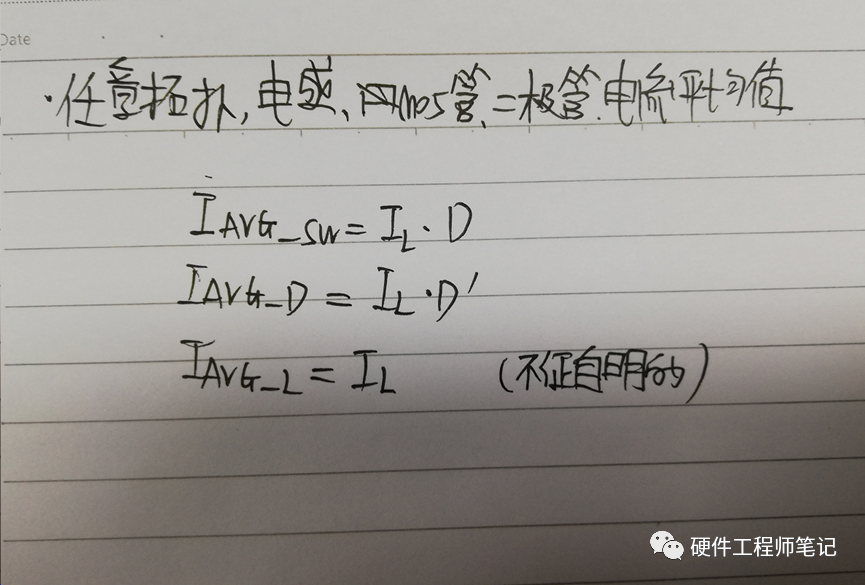 Date
·任意拓扑,电感、mos管、二极管.电流平均值
I_AVG_SW = I_L · D
I_AVG_D = I_L · D'
I_AVG_L = I_L (不证自明的)
硬件工程师笔记